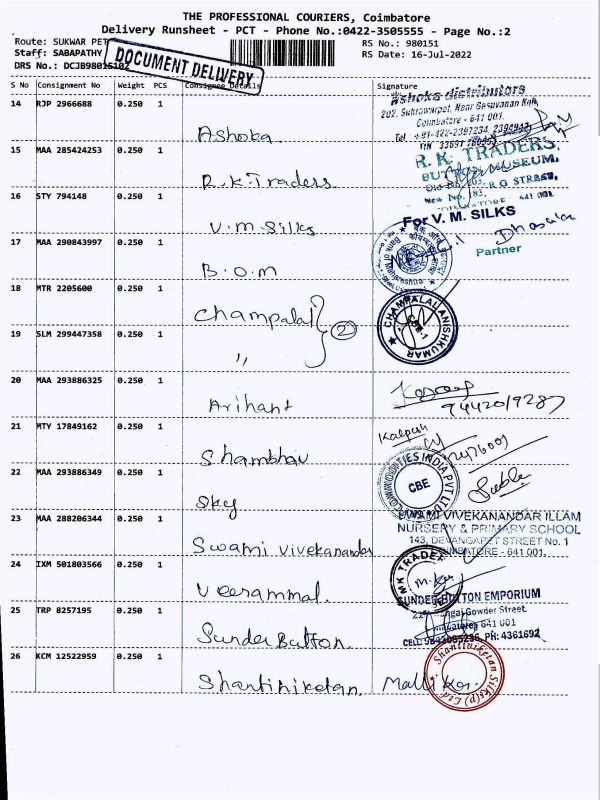 THE PROFESSIONAL COURIERS, Coimbatore
Delivery Runsheet - PCT - Phone No.:0422-3505555 - Page No.:2
Route: SUKWAR PET
RS No.: 980151
Staff: SABAPATHY
RS Date: 16-Jul-2022
DRS No.: DCJB98015102
DOCUMENT DELIVERY
S No Consignment No Weight PCS Consignee Details Signature
14 RJP 2966688 0.250 1
Ashoka
Ashoka distributors
202, Sukrawarpet, Near Sasuvanan Koil,
Coimbatore - 641 001.
Tel +91-422-2397234
15 MAA 285424253 0.250 1
R.K.Traders
R. K. TRADERS,
MUSEUM,
R G STREET,
New No. 183,
COIMBATORE 641 001
16 STY 794148 0.250 1
V.M Silks
For V. M. SILKS
Partner
17 MAA 290843997 0.250 1
B.O.M
Bank of Maharashtra
18 MTR 2205600 0.250 1
Champalal 2
CHAMPALAL ANISHKUMAR
CBE-1
19 SLM 299447358 0.250 1
"
20 MAA 293886325 0.250 1
Arihant
9442019287
21 MTY 17849162 0.250 1
Shambhav
Kalpesh
22 MAA 293886349 0.250 1
Sky
COMMODITIES INDIA PVT LTD
CBE
23 MAA 288206344 0.250 1
Swami Vivekanandar
SWAMI VIVEKANANDAR ILLAM
NURSERY & PRIMARY SCHOOL
143, DEVANGAPET STREET No. 1
COIMBATORE - 641 001.
24 IXM 501803566 0.250 1
Veerammal.
MK TRADEX
25 TRP 8257195 0.250 1
Sunder Button
SUNDER BUTTON EMPORIUM
Gowder Street.
641 001
PH: 4361692
26 KCM 12522959 0.250 1
Shantiniketan
Shantiniketan Silks (p) Ltd